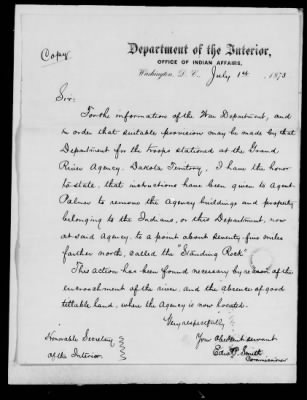 Copy
Department of the Interior,
OFFICE OF INDIAN AFFAIRS,
Washington, D. C., July 1st, 1873
Sir:
For the information of the War Department, and
in order that suitable provision may be made by that
Department for the troops stationed at the Grand
River Agency, Dakota Territory, I have the honor
to state, that instructions have been given to Agent
Palmer to remove the Agency buildings and property
belonging to the Indians, or this Department, now
at said Agency, to a point about seventy five miles
farther north, called the "Standing Rock"
This action has been found necessary by reason of the
encroachment of the river, and the absence of good
tillable land, where the Agency is now located.
Very respectfully
Your obedient servant
Edw. P. Smith
Commissioner
Honorable Secretary
of the Interior.